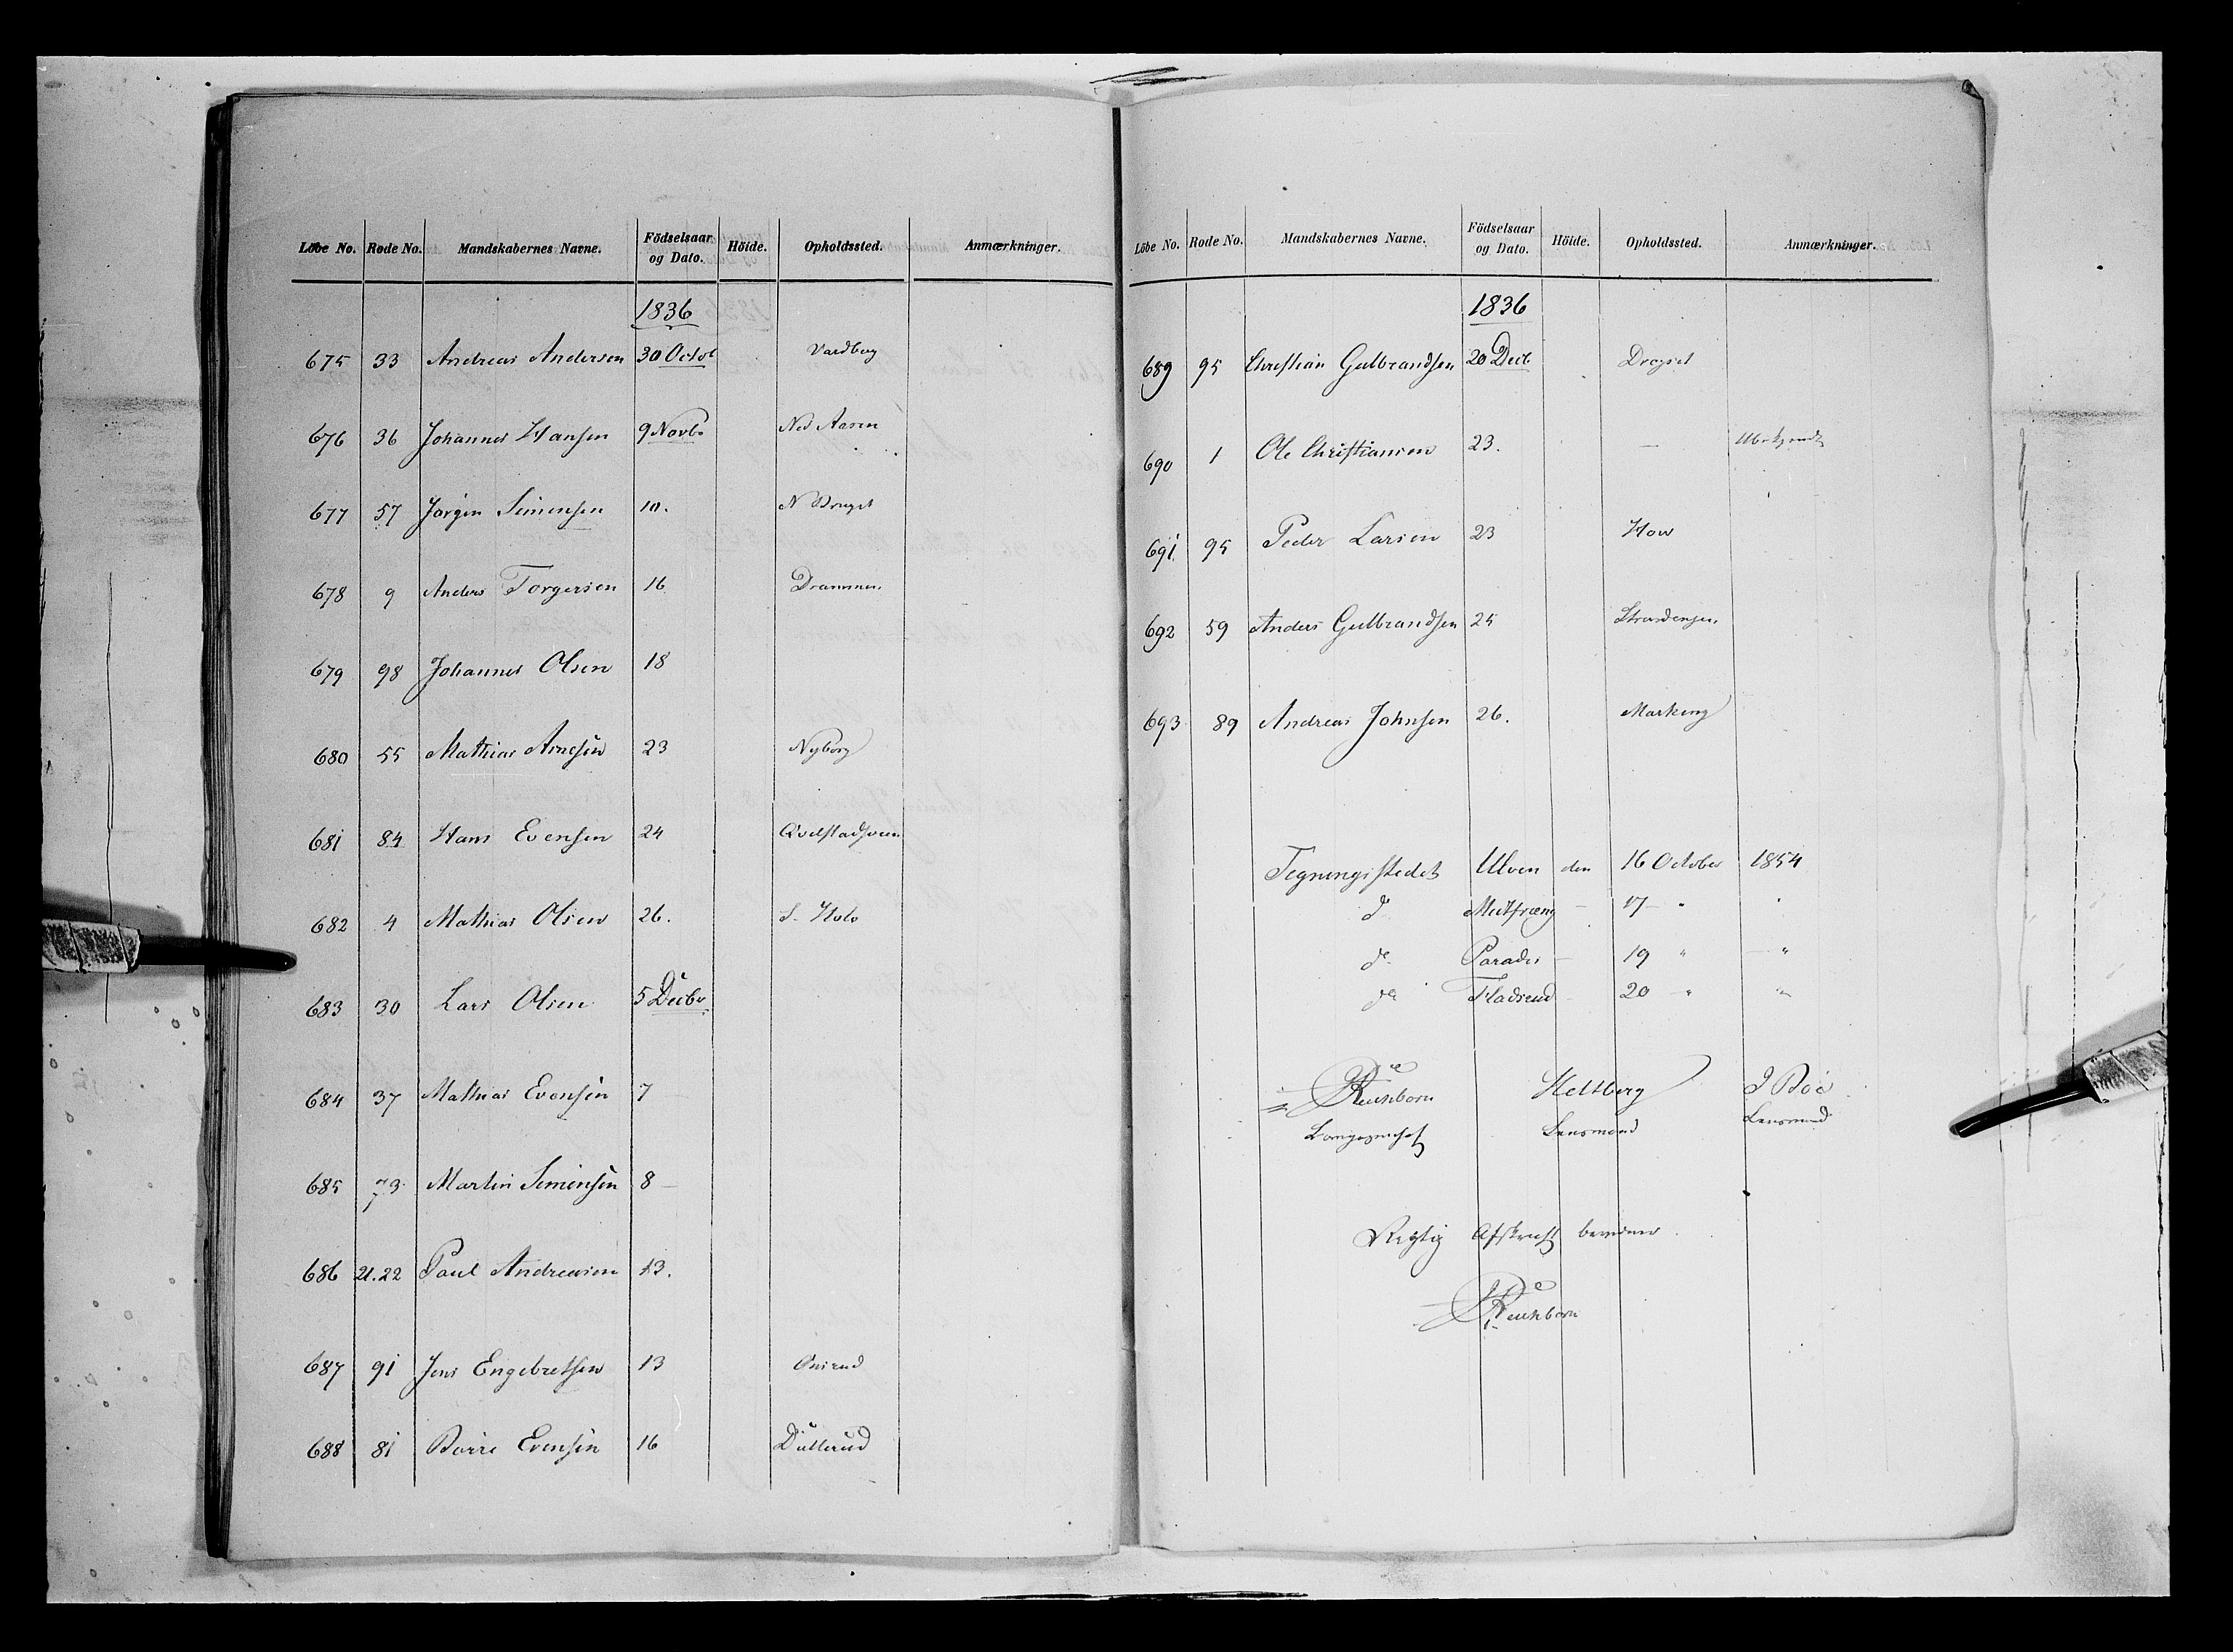 Löbe No. Rode No. Mandskabernes Navne. Födselsaar og Dato. Höide. Opholdssted. Anmærkninger.
1836
675 33 Andreas Andersen 30 Octob Vardberg
676 36 Johannes Hansen 9 Novbr Ned Aasen
677 57 Jørgen Simensen 10. N
678 9 Anders Torgersen 16 Drammen
679 98 Johannes Olsen 18
680 55 Mathias Arnesen 23 Nyborg
681 84 Hans Evensen 24 Qvelstadsveen
682 4 Mathias Olsen 26. S. Holo
683 30 Lars Olsen 5 Decbr
684 37 Mathias Evensen 7
685 73 Martin Simensen 8
686 21.22 Paul Andreasen 13.
687 91 Jens Engebretsen 13 Onsrud
688 81 Børre Evensen 16 Dullerud
Löbe No. Rode No. Mandskabernes Navne. Födselsaar og Dato. Höide. Opholdssted. Anmærkninger.
1836
689 95 Christian Gulbrandsen 20 Decb.
690 1 Ole Christiansen 23. — Ubekjendt
691 95 Peder Larsen 23 How
692 59 Anders Gulbrandsen 25 Strandengen
693 89 Andreas Johnsen 26. Markeng
Tegningsstedet Ulven den 16 October 1854
do — 17 " "
do Parades — 19 " — "
do Fladerud — 20 — " "
Reichborn Heltberg J Boe
Lensmand Lensmand
Rigtig Afskrift bevidner
Reichborn